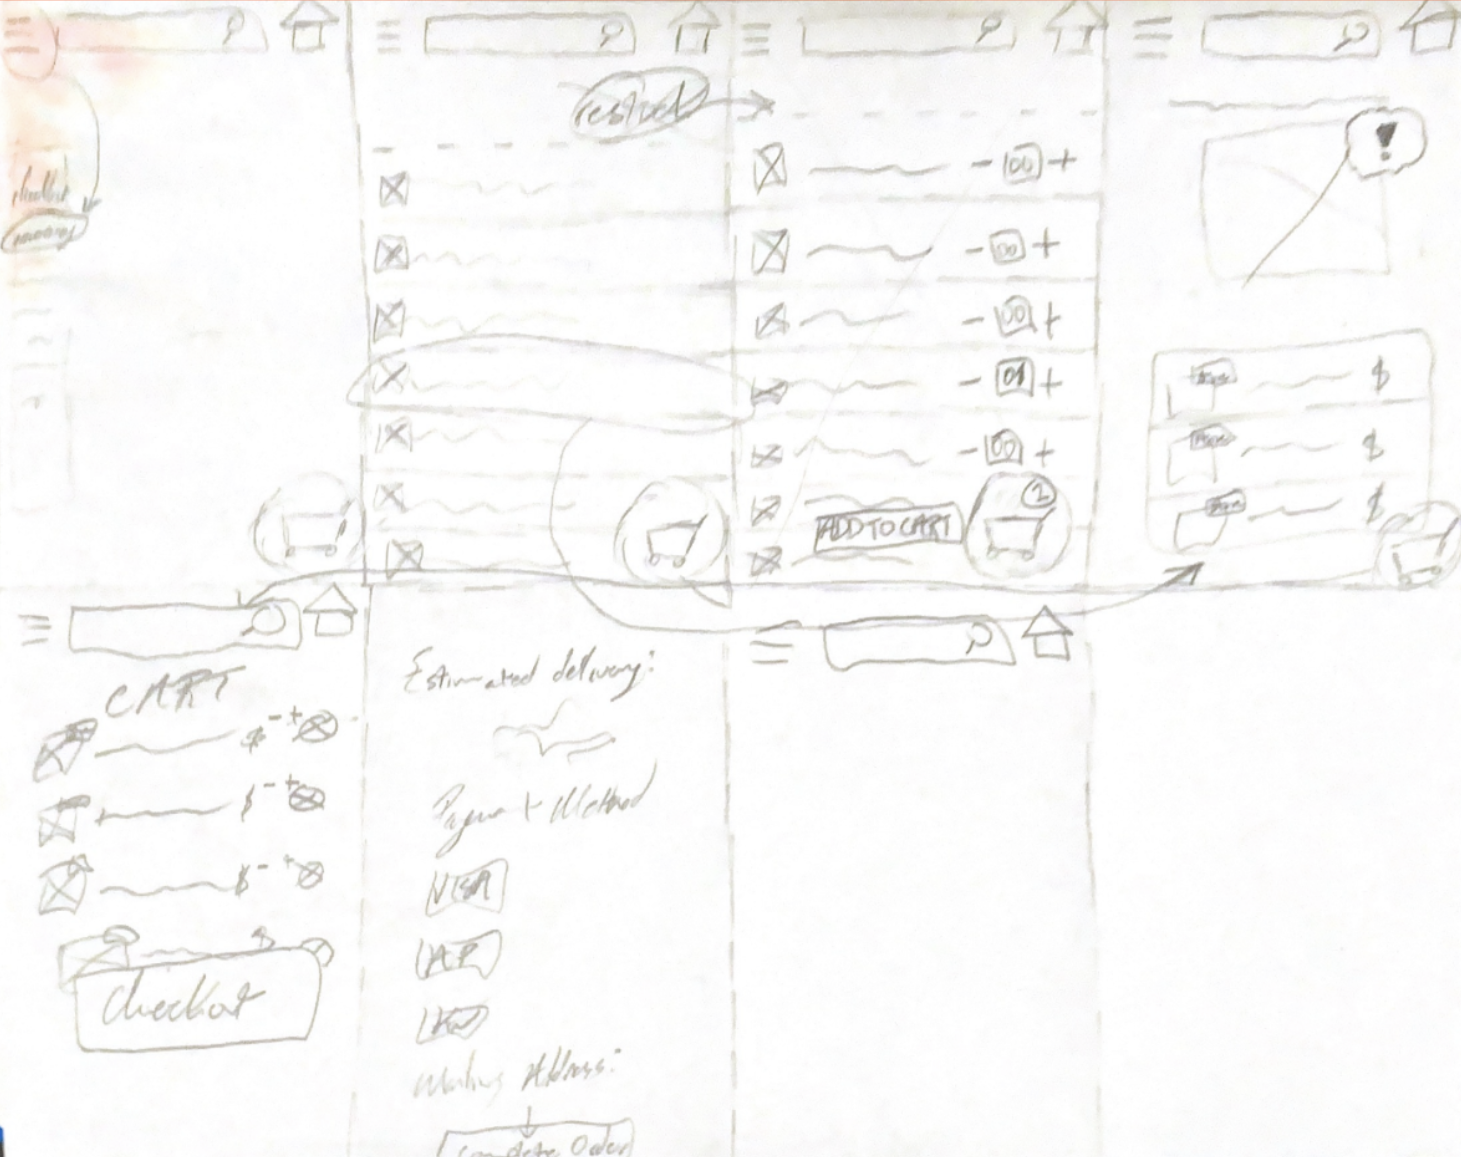 restock
checkout
inventory
- 00 +
- 00 +
- 00 +
- 01 +
- 00 +
2
ADD TO CART
!
$
$
$
CART
$ - +
$ - +
$ - +
$
Checkout
Estimated delivery:
Payment Method
VISA
AP
Mailing Address:
Complete Order